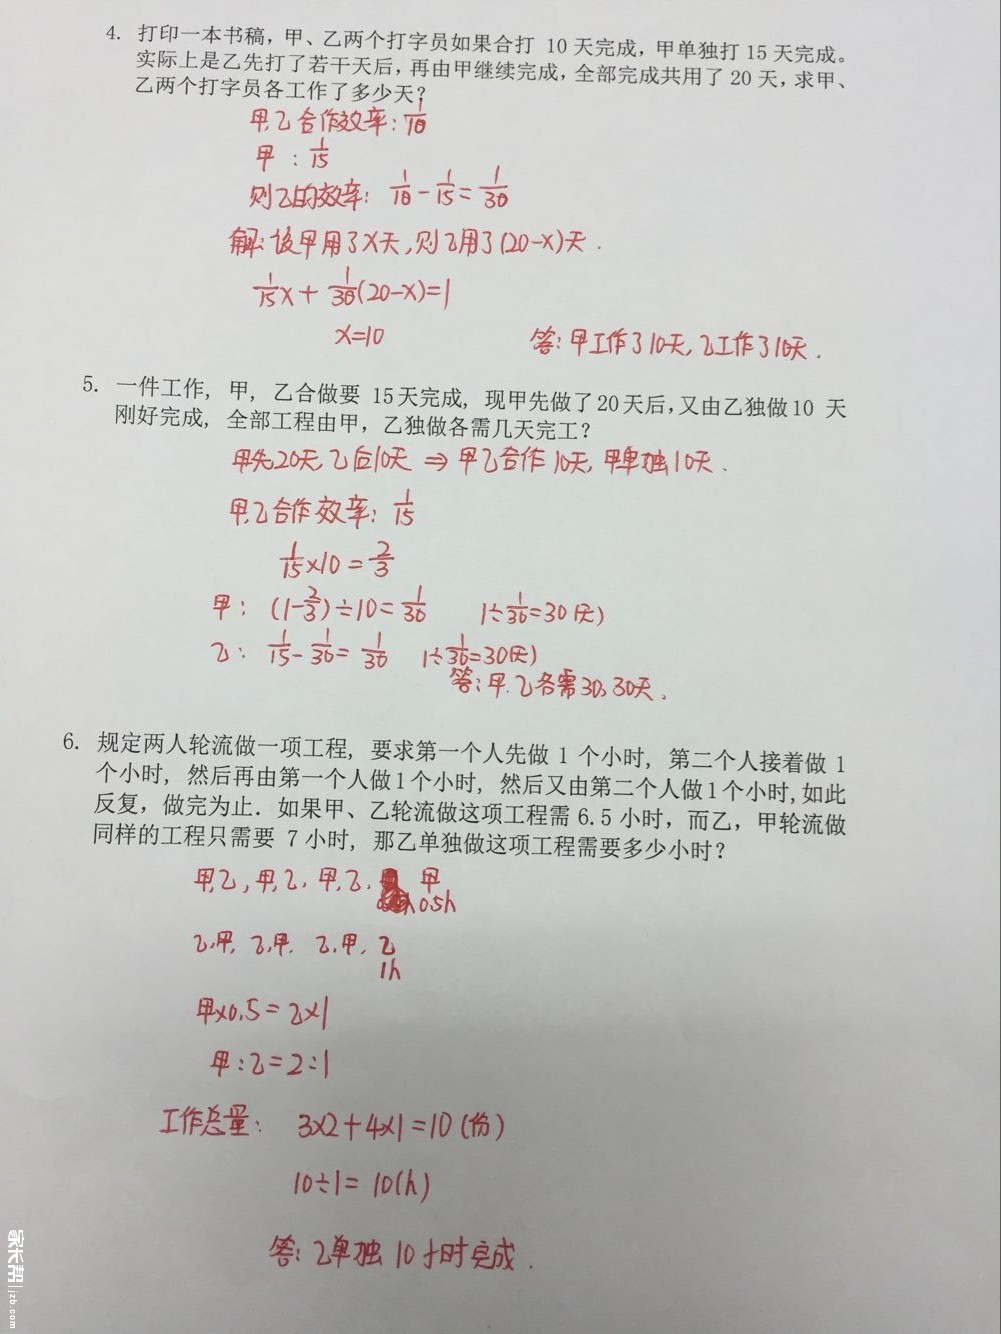 4. 打印一本书稿，甲、乙两个打字员如果合打 10 天完成，甲单独打 15 天完成。
实际上是乙先打了若干天后，再由甲继续完成，全部完成共用了 20 天，求甲、
乙两个打字员各工作了多少天？
甲,乙合作效率：1/10
甲：1/15
则乙的效率：1/10-1/15=1/30
解：设甲用了x天,则乙用了(20-x)天.
1/15x+1/30(20-x)=1
x=10
答：甲工作了10天,乙工作了10天.
5. 一件工作，甲，乙合做要 15天完成，现甲先做了20天后，又由乙独做10 天
刚好完成，全部工程由甲，乙独做各需几天完工？
甲先20天,乙后10天 ⇒ 甲乙合作10天,甲单独10天.
甲,乙合作效率：1/15
1/15×10=2/3
甲：(1-2/3)÷10=1/30 1÷1/30=30(天)
乙：1/15-1/30=1/30 1÷1/30=30(天)
答：甲.乙各需30,30天.
6. 规定两人轮流做一项工程，要求第一个人先做 1 个小时，第二个人接着做 1
个小时，然后再由第一个人做1个小时，然后又由第二个人做1个小时,如此
反复，做完为止．如果甲、乙轮流做这项工程需 6.5 小时，而乙，甲轮流做
同样的工程只需要 7 小时，那乙单独做这项工程需要多少小时？
甲,乙,甲,乙,甲,乙, 甲
0.5h
乙,甲,乙,甲,乙,甲,乙
1h
甲×0.5=乙×1
甲:乙=2:1
工作总量：3×2+4×1=10(份)
10÷1=10(h)
答：乙单独10小时完成.
家长帮 jzb.com